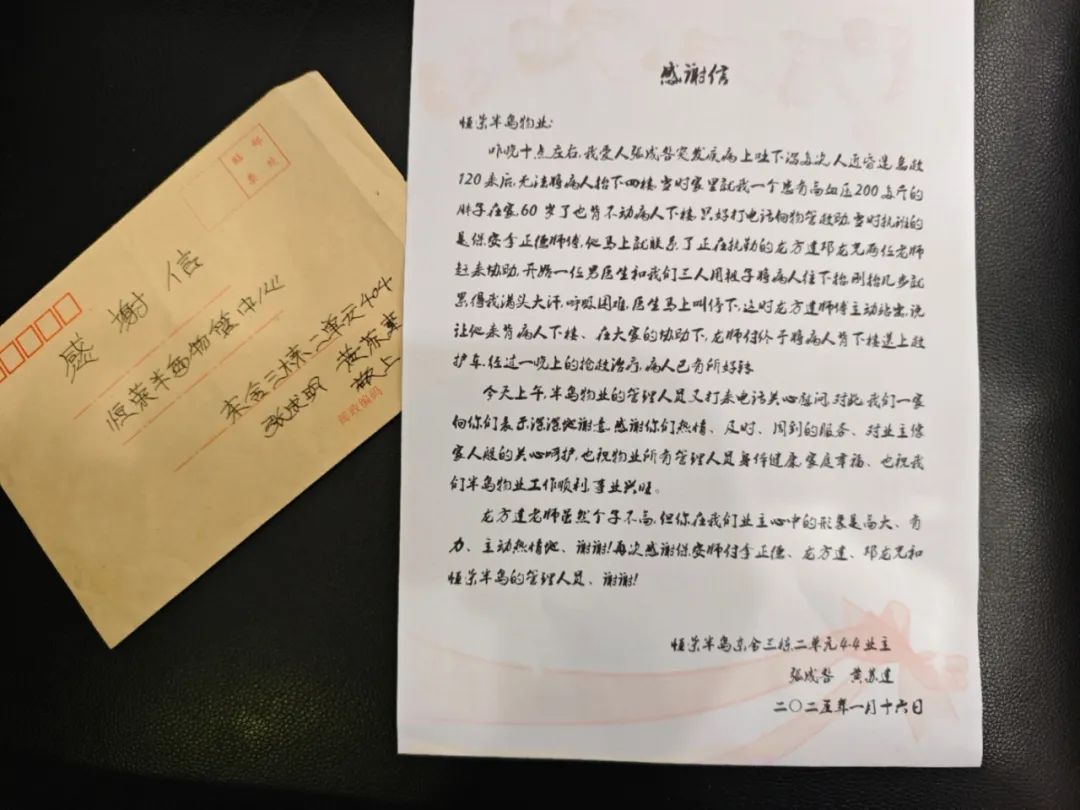 感谢信
恒荣半岛物业:
昨晚十点左右,我爱人张成智突发疾病上吐下泻多次,人近昏迷,急救
120来后,无法将病人抬下四楼,当时家里就我一个患有高血压200多斤的
胖子在家,60岁了也背不动病人下楼,只好打电话向物管救助,当时执班的
是保安李正德师傅,他马上就联系了正在执勤的龙方道邓龙兄两位老师
赶来协助,开始一位男医生和我们三人用被子将病人往下抬,刚抬几步就
累得我满头大汗,呼吸困难,医生马上叫停下,这时龙方道师傅主动站出,说
让他来背病人下楼、在大家的协助下,龙师付终于将病人背下楼送上救
护车,经过一晚上的抢救治疗,病人已有所好转
今天上午,半岛物业的管理人员又打来电话关心慰问,对此,我们一家
向你们表示深深地谢意,感谢你们热情、及时、周到的服务、对业主像
家人般的关心呵护,也祝物业所有管理人员身体健康,家庭幸福、也祝我
们半岛物业工作顺利,事业兴旺。
龙方道老师虽然个子不高,但你在我们业主心中的形象是高大、有
力、主动热情地、谢谢!再次感谢保安师付李正德、龙方道、邓龙兄和
恒荣半岛的管理人员、谢谢!
恒荣半岛东舍三栋二单元4-4业主
张成智 黄苏建
二〇二五年一月十六日
感谢信
恒荣半岛物管中心
东舍三栋二单元404
黄苏建
敬上
邮政编码
贴邮
票处